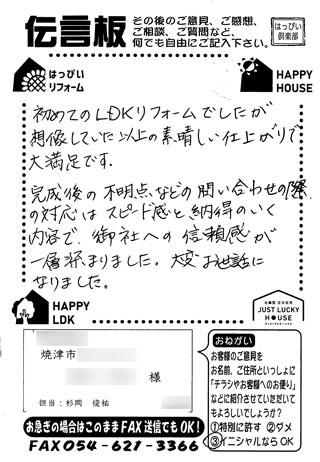 伝言板
その後のご意見、ご感想、
ご相談、ご質問など、
何でも自由にご記入下さい。
はっぴい
倶楽部
はっぴい
リフォーム
HAPPY
HOUSE
初めてのLDKリフォームでしたが
想像していた以上の素晴しい仕上がりで
大満足です。
完成後の不明点などの問い合わせの際
の対応はスピード感と納得のいく
内容で、御社への信頼感が
一層深まりました。大変お世話に
なりました。
HAPPY
LDK
JUST LUCKY
HOUSE
焼津市
様
担当:杉岡 俊祐
おねがい
お客様のご意見を
お名前、ご住所といっしょに
「チラシやお客様へのお便り」
などに紹介させていただいて
もよろしいでしょうか?
①特別に許す ②ダメ
③イニシャルならOK
お急ぎの場合はこのままFAX送信でもOK!
FAX054-621-3366